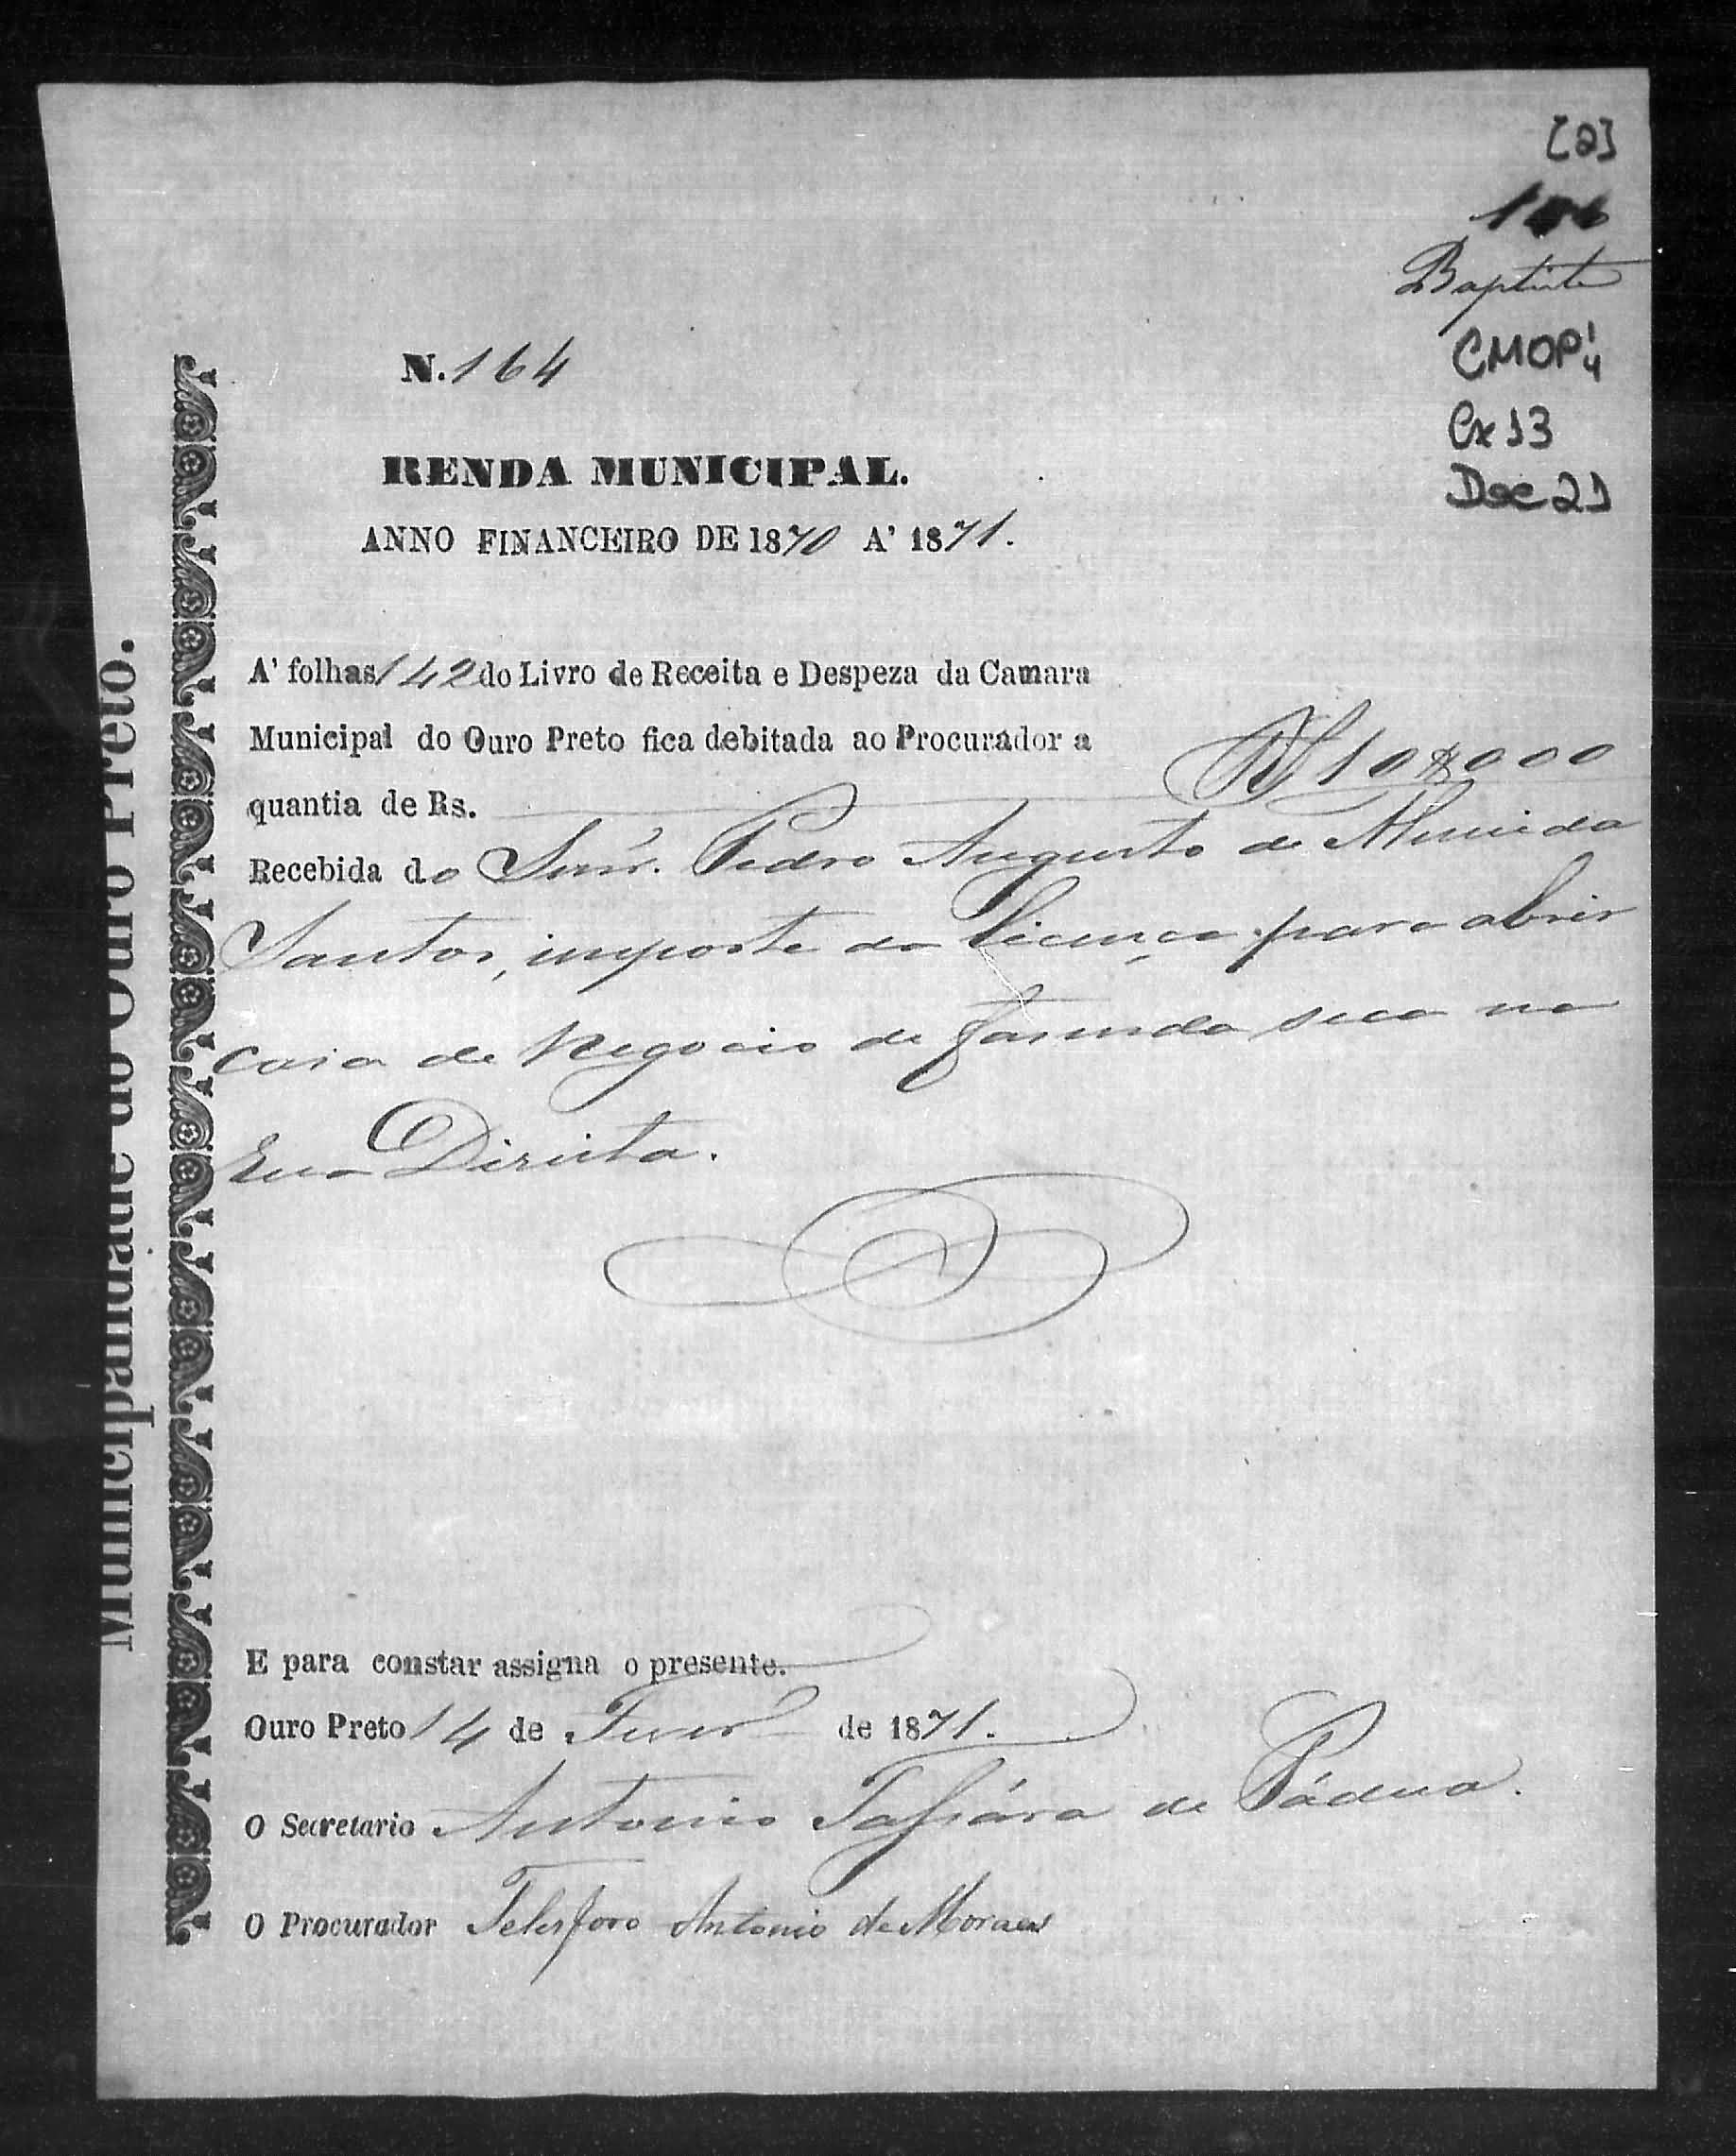 [2]
Baptista
CMOP 1/4
Cx 13
Doc 21
N. 164
RENDA MUNICIPAL.
ANNO FINANCEIRO DE 1870 A' 1871.
A' folhas 142 do Livro de Receita e Despeza da Camara
Municipal do Ouro Preto fica debitada ao Procurador a
quantia de Rs. Rs 10$000
Recebida do Snr. Pedro Augusto de Almeida
Santos, importe da licença para abrir
casa de Negocio de fasenda seca na
Rua Direita.
E para constar assigna o presente.
Ouro Preto 14 de Fever.º de 1871.
O Secretario Antonio Tassára de Pádua.
O Procurador Telesforo Antonio de Moraes
Municipalidade do Ouro Preto.